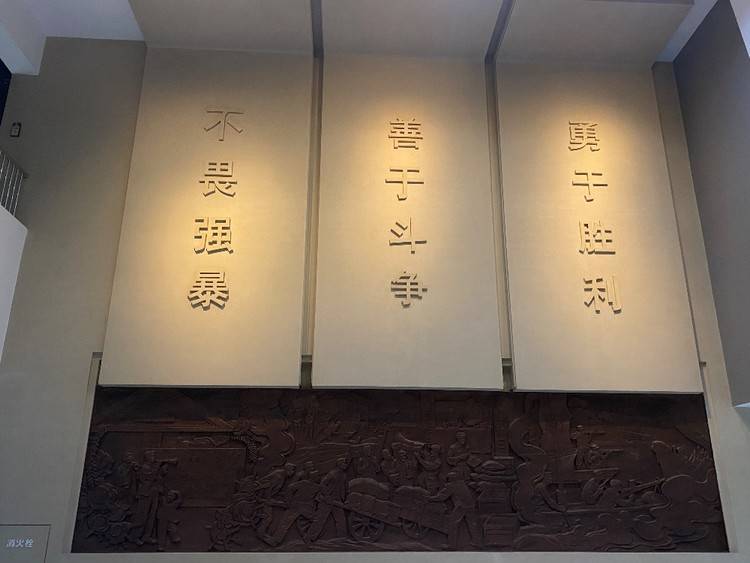 不畏强暴
善于斗争
勇于胜利
消火栓